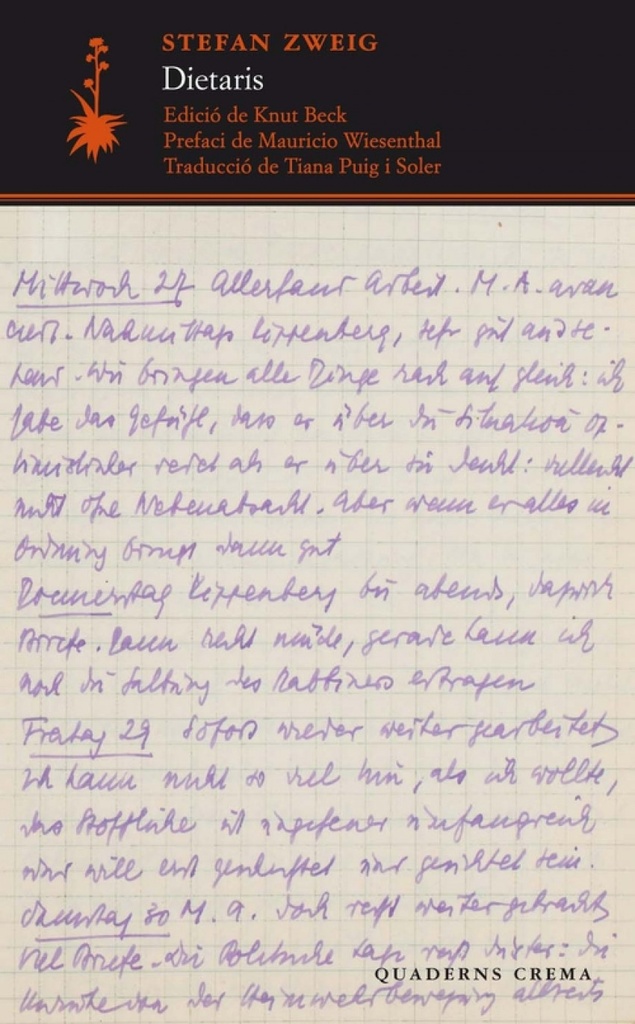 STEFAN ZWEIG
Dietaris
Edició de Knut Beck
Prefaci de Mauricio Wiesenthal
Traducció de Tiana Puig i Soler
Mittwoch 27 Allerhand Arbeit. M. A. avan
ciert. Nachmittags Kippenberg, sehr gut
Wir bringen alle Dinge rasch auf gleich: ich
habe das Gefühl, dass er über die Situation op-
timistischer redet als er über sie denkt: vielleicht
nicht ohne Nebenabsicht. Aber wenn er alles in
Ordnung bringt dann gut
Donnerstag Kippenberg bis abends,
Briefe. Dann recht müde, gerade kann ich
noch die Salbung des Rabbiners ertragen
Freitag 29 Sofort wieder weitergearbeitet
Ich kann nicht so viel tun, als ich wollte,
das Stoffliche ist ungeheuer umfangreich
und will erst gesichtet sein.
Samstag 30 M. A. doch recht weitergebracht
Viel Briefe. Die Politische Lage recht düster: die
der Heimwehrbewegung allseits
QUADERNS CREMA